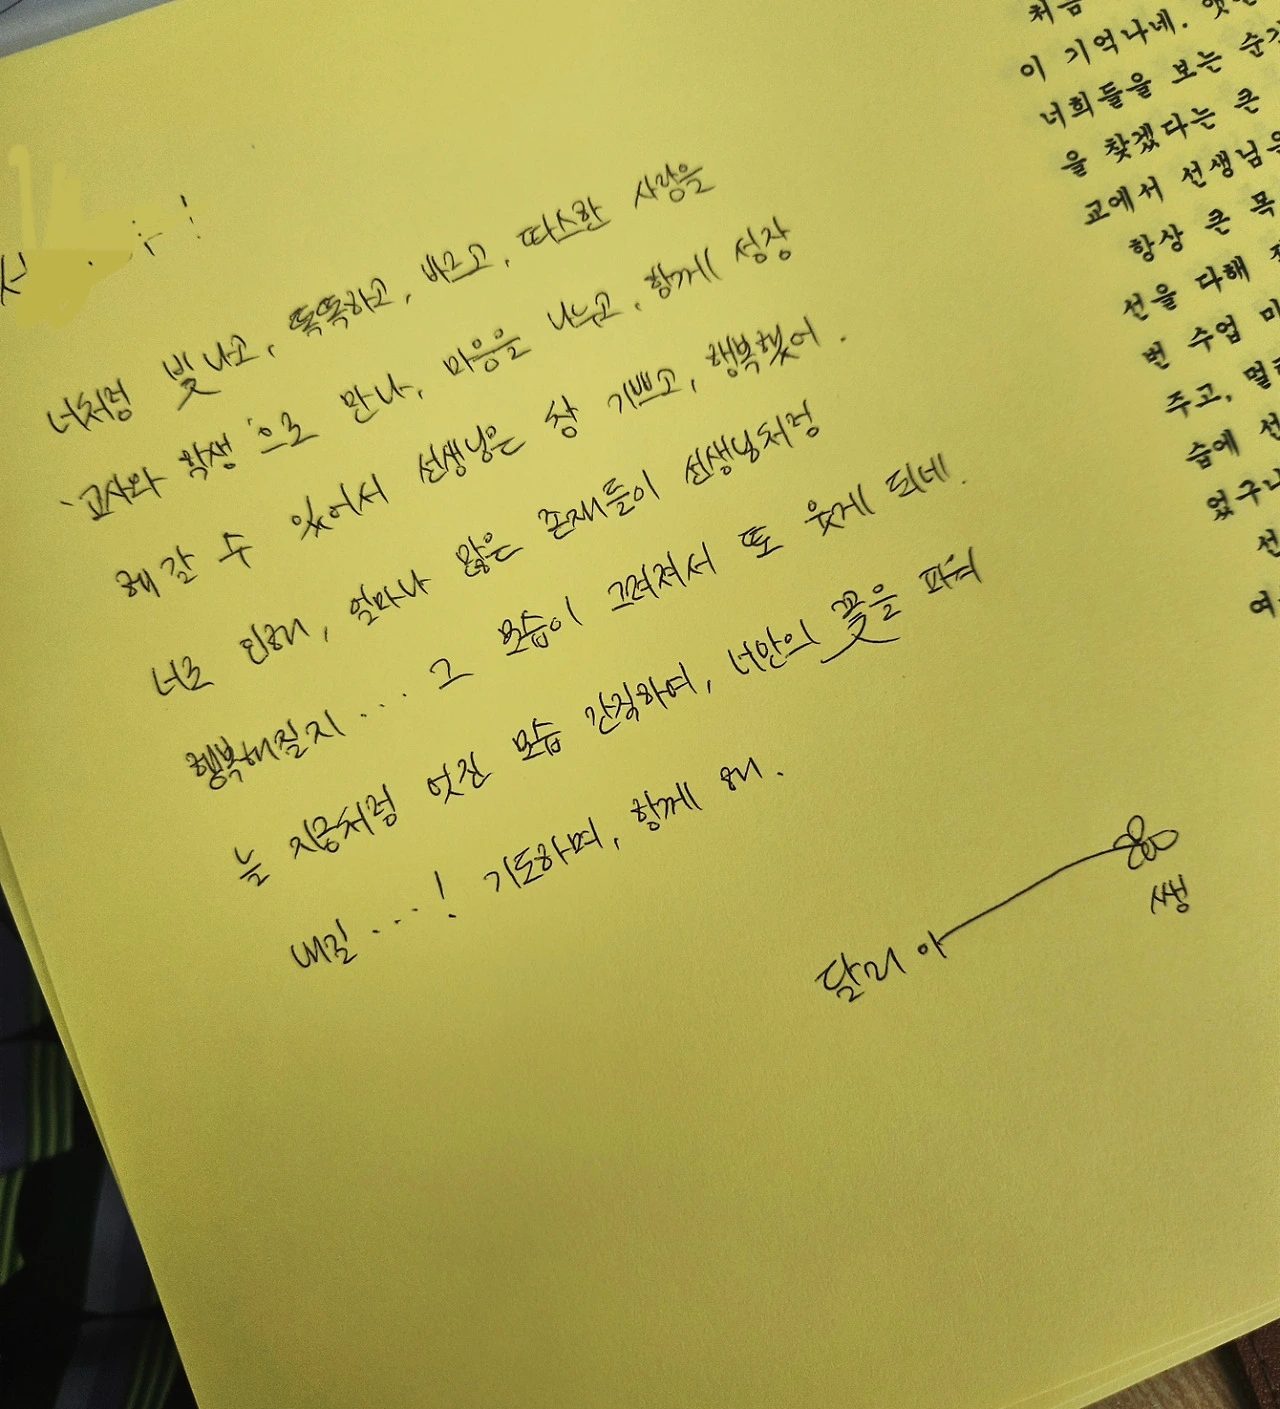 너처럼 빛나고, 똑똑하고, 바르고, 따스한 사랑을
'교사와 학생'으로 만나, 마음을 나누고, 함께 성장
해갈 수 있어서 선생님은 참 기쁘고, 행복했어.
너로 인해, 얼마나 많은 존재들이 선생님처럼
행복해질지... 그 모습이 그려져서 또 웃게 되네.
늘 지금처럼 멋진 모습 간직하여, 너만의 꽃을 피워
내길...! 기도하며, 함께 해.
달리아
쌤
처음
이 기억나네.
너희들을 보는 순간
을 찾겠다는 큰
교에서 선생님은
항상 큰 목
선을 다해
번 수업
주고,
습에
었구나